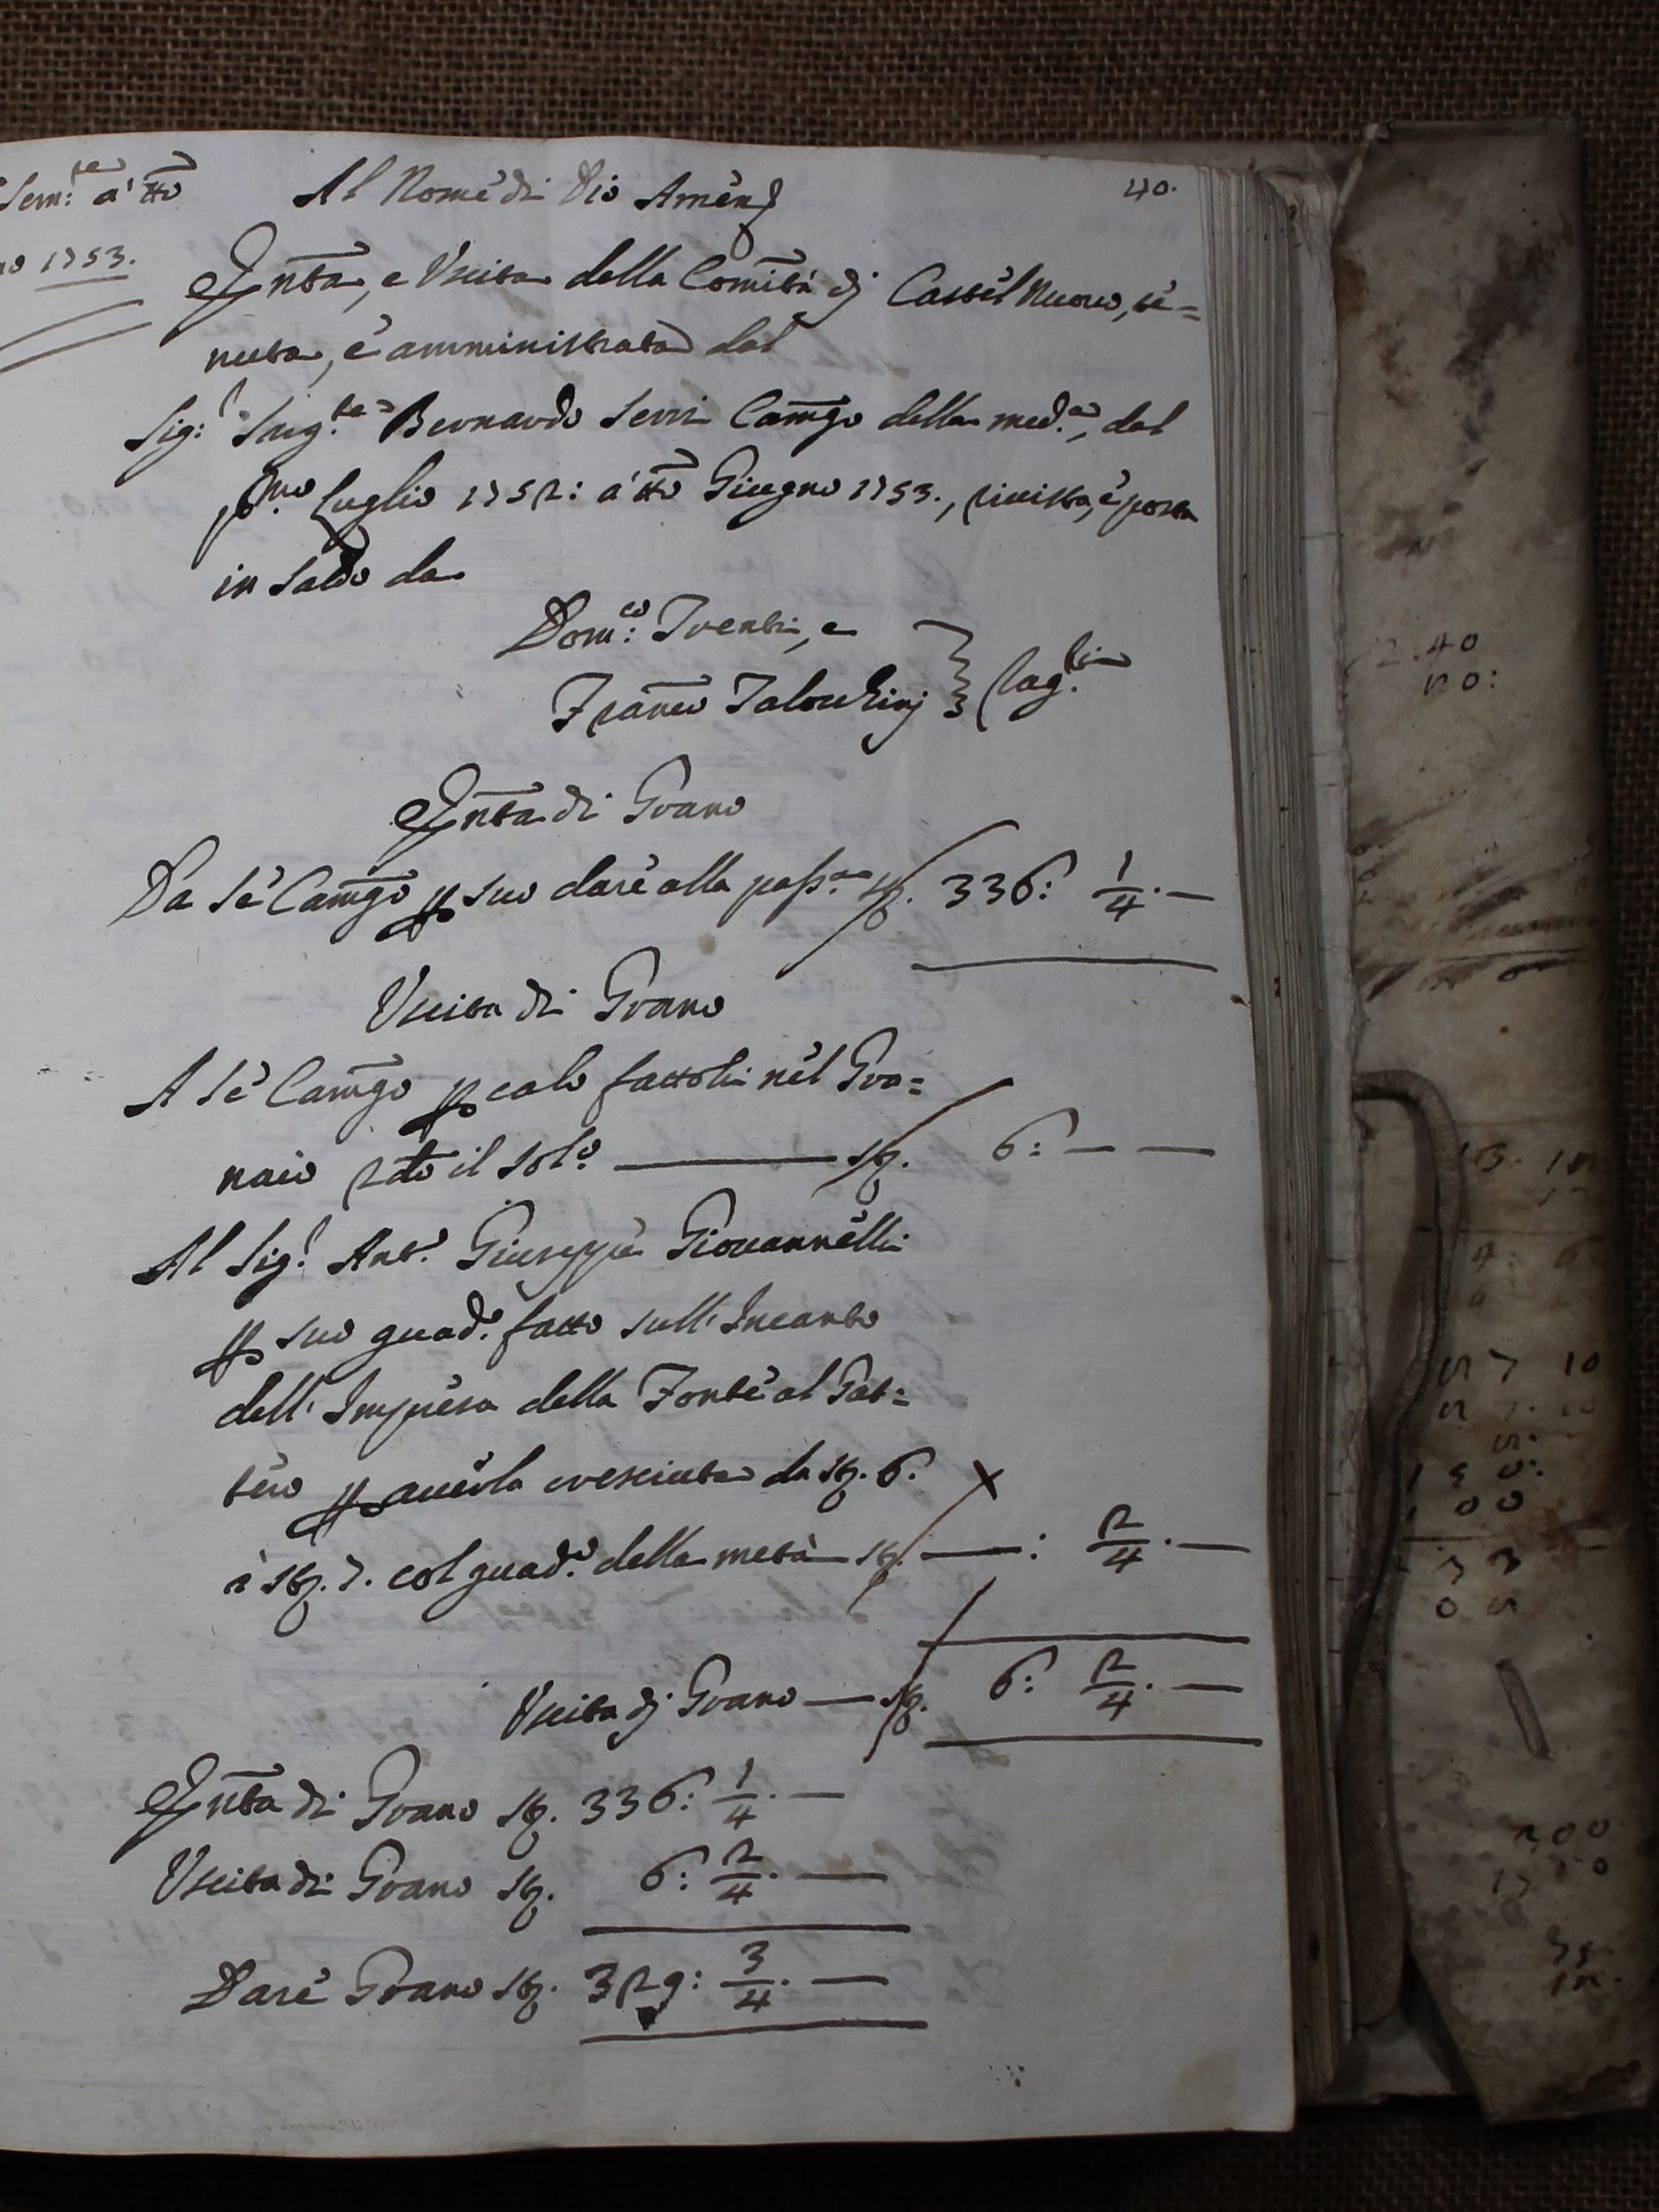 Sem:re à tto
no 1753.
Al Nome di Dio Amen
40.
Entta, e Uscita della Comità di Castel Nuovo, te=
nuta, e amministrata dal
Sig:r Sarg.te Bernardo Serri Camgo della med.a, dal
p.mo Luglio 1752: à tto Giugno 1753., rivista, e posta
in saldo da
Dom:co Tventi, e
Franco Talocchini
Rag.ri
Entta di Grano
Da se Camgo p suo dare alla pass.a st. 336: 1/4. —
Uscita di Grano
A se Camgo p calo fattoli nel Gra=
naio 2do il sol.o — st. 6: — —
Al Sig.r Ant.o Giuseppe Giovannelli
p suo guad.o fatto sull' Incanto
dell' Impresa della Fonte al Gat=
teio p averla cresciuta da st. 6.
à st. 7. col guad.o della metà st. — : 2/4. —
Uscita di Grano — st. 6: 2/4. —
Entta di Grano st. 336: 1/4. —
Uscita di Grano st. 6: 2/4. —
Dare Grano st. 329: 3/4. —
2.40
20:
57 10
100
33